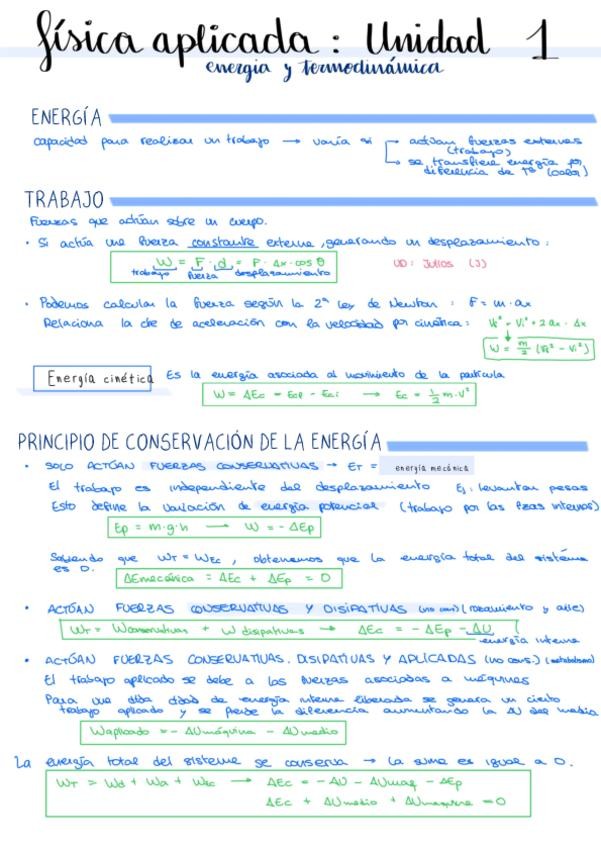 física aplicada : Unidad 1
energía y termodinámica
ENERGÍA
capacidad para realizar un trabajo → varía si → actúan fuerzas externas
(trabajo)
→ se transfiere energía por
diferencia de Tª (calor)
TRABAJO
Fuerzas que actúan sobre un cuerpo.
· Si actúa una fuerza constante externa, generando un desplazamiento:
W = F · d = F · Δx · cos θ
trabajo fuerza desplazamiento
UD: Julios (J)
· Podemos calcular la fuerza según la 2ª Ley de Newton : F = m · ax
Relaciona la cte de aceleración con la velocidad por cinética: Vf² = Vi² + 2ax · Δx
W = m/2 (Vf² - Vi²)
Energía cinética
Es la energía asociada al movimiento de la partícula
W = ΔEc = Ecf - Eci → Ec = 1/2 m·V²
PRINCIPIO DE CONSERVACIÓN DE LA ENERGÍA
· SOLO ACTÚAN FUERZAS CONSERVATIVAS → ET = energía mecánica
El trabajo es independiente del desplazamiento Ej: levantar pesas
Esto define la variación de energía potencial (trabajo por las fzas internas)
Ep = m·g·h → W = - ΔEp
Sabiendo que WT = WEc, obtenemos que la energía total del sistema
es 0.
ΔEmecánica = ΔEc + ΔEp = 0
· ACTÚAN FUERZAS CONSERVATIVAS Y DISIPATIVAS (no cons) (rozamiento y aire)
WT = Wconservativas + W disipativas → ΔEc = - ΔEp - ΔU
energía interna
· ACTÚAN FUERZAS CONSERVATIVAS, DISIPATIVAS Y APLICADAS (no cons.) (metabolismo)
El trabajo aplicado se debe a las fuerzas asociadas a máquinas
Para una dada de energía interna liberada se genera un cierto
trabajo aplicado y se pierde la diferencia aumentando la ΔU del medio
Waplicado = - ΔUmáquina - ΔUmedio
La energía total del sistema se conserva → La suma es igual a 0.
WT = Wd + Wa + WEc → ΔEc = - ΔU - ΔUmaq - ΔEp
ΔEc + ΔUmedio + ΔUmaquina = 0